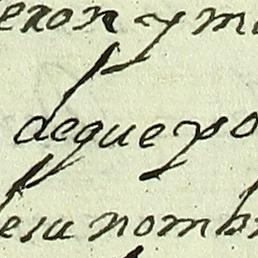 eron y m
de que yo
e su nomb